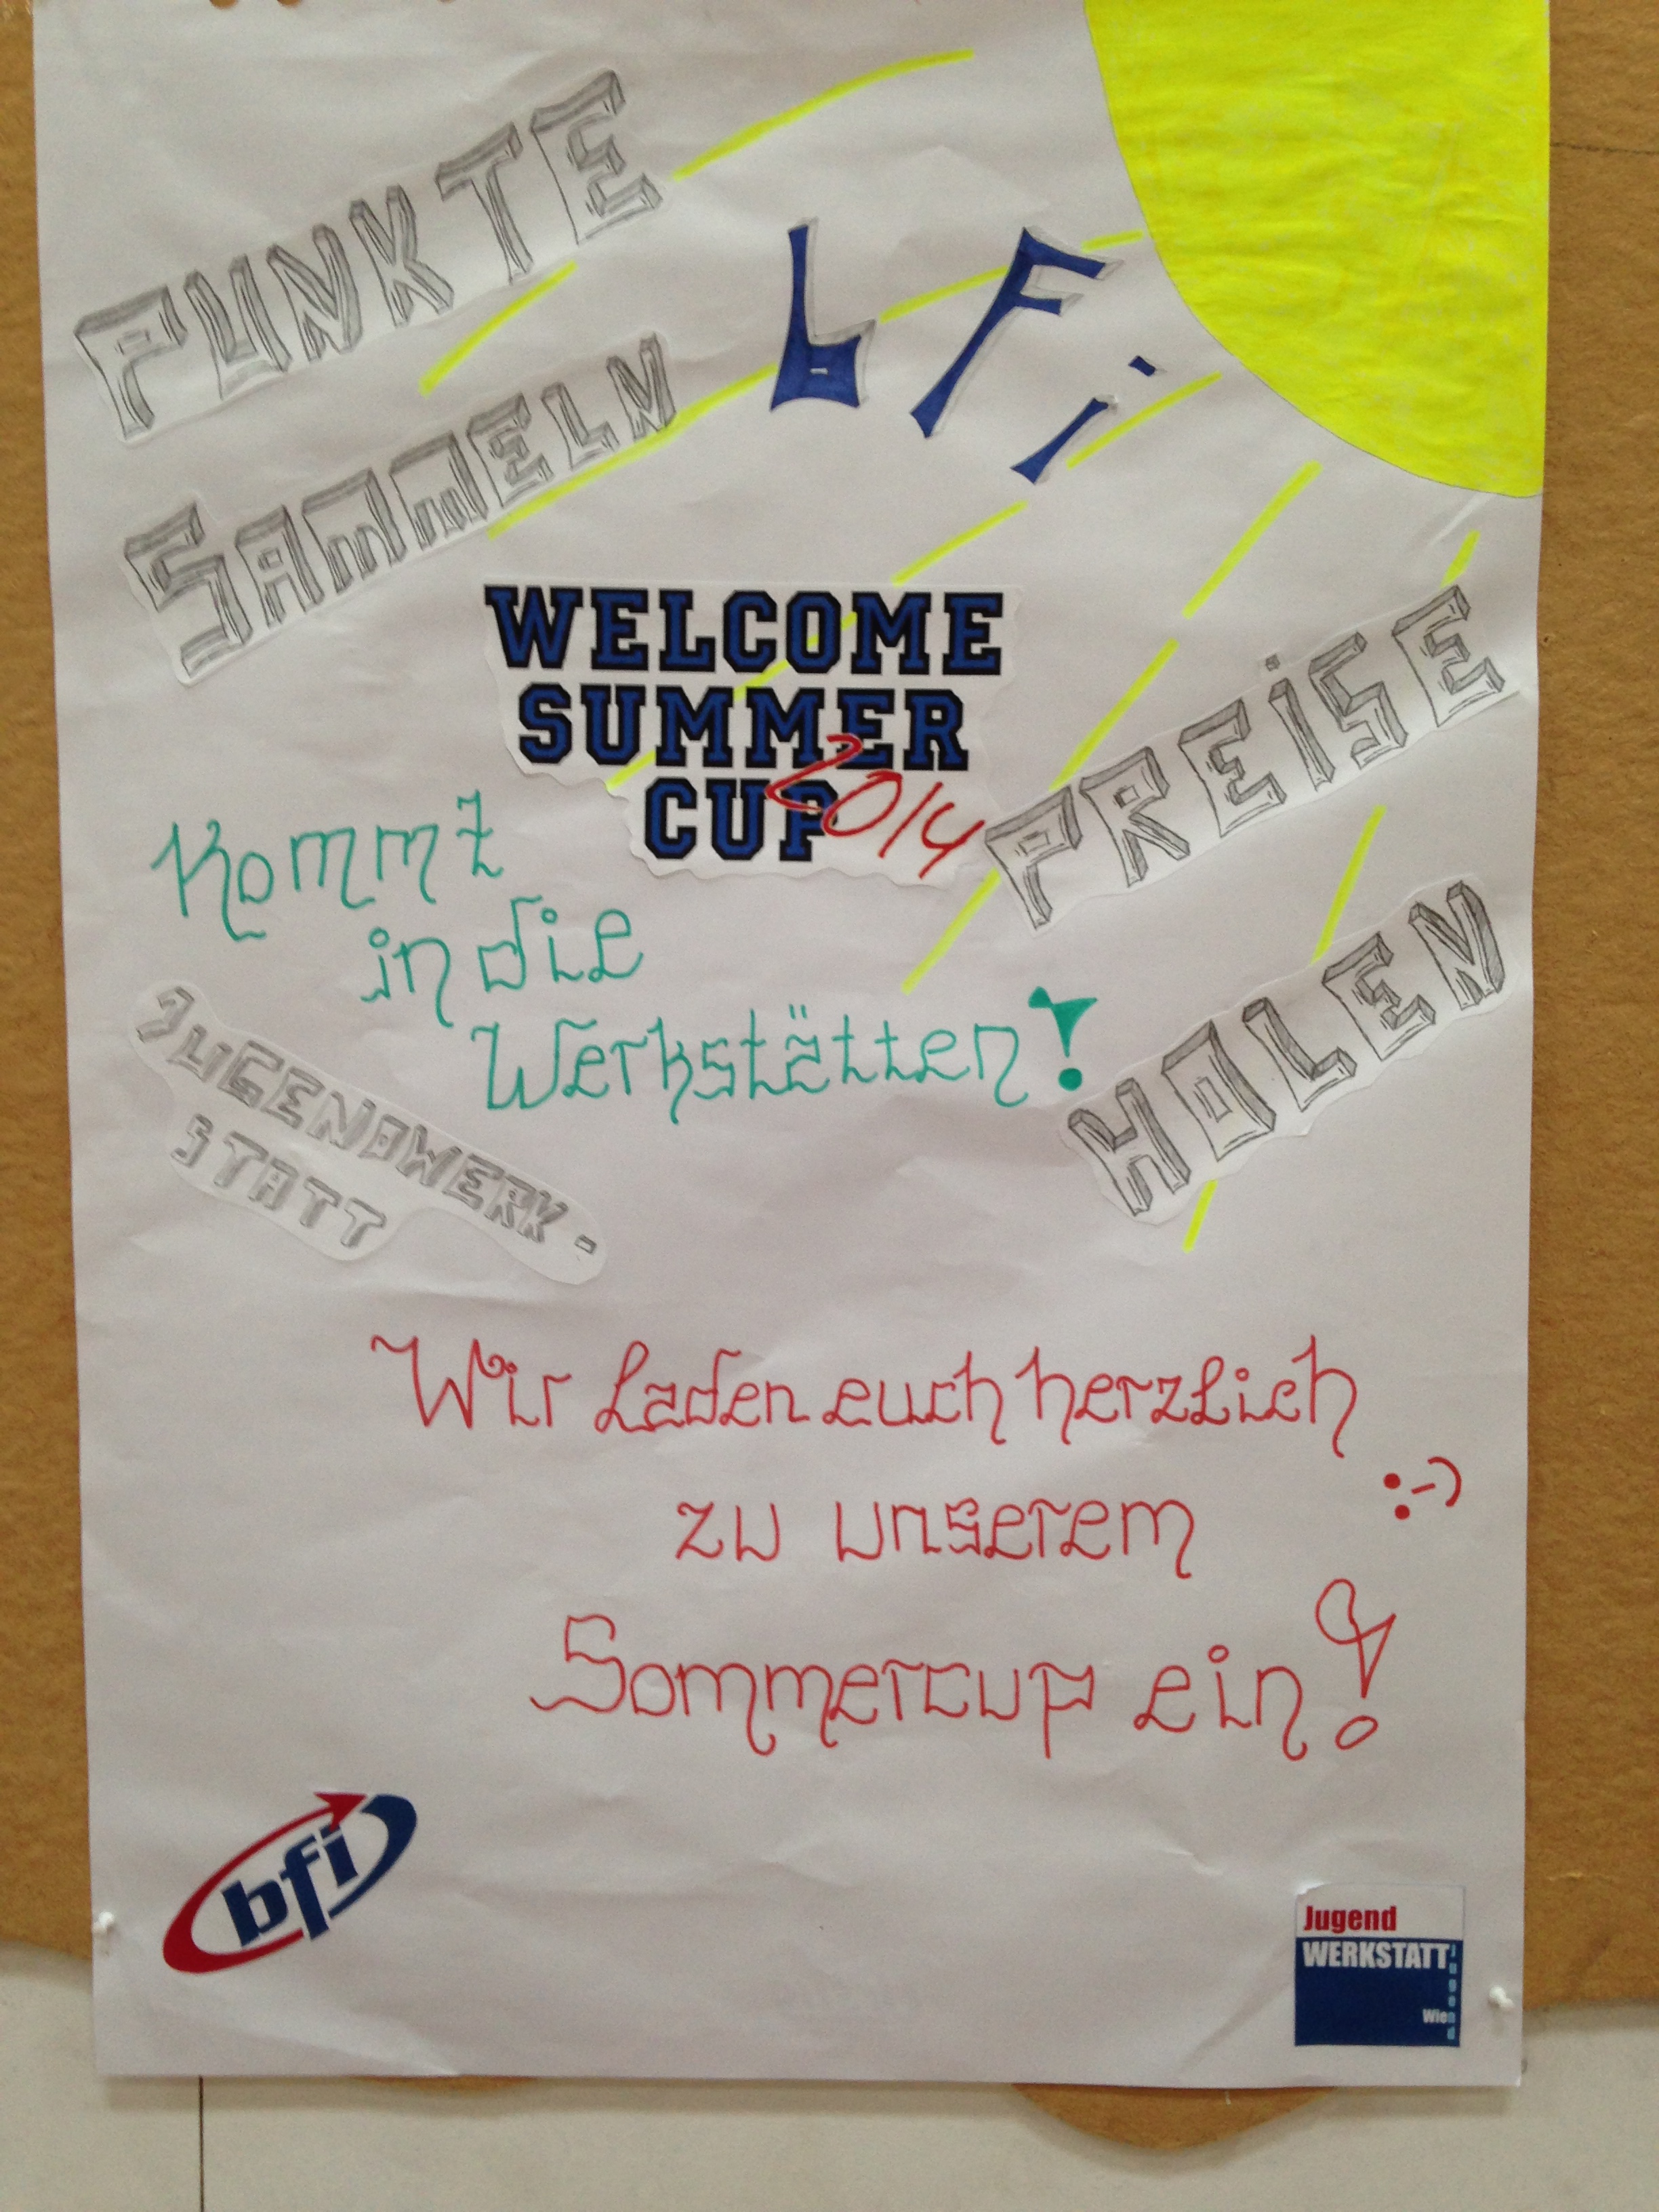 PUNKTE
SAMMELN
bFi
WELCOME
SUMMER
CUP 2014
PREiSE
HOLEN
Kommt
in die
Werkstätten!
JUGENDWERK-
STATT
Wir laden euch herzlich
zu unserem :-)
Sommercup ein!
bfi
Jugend
WERKSTATT
Wien
Jugend